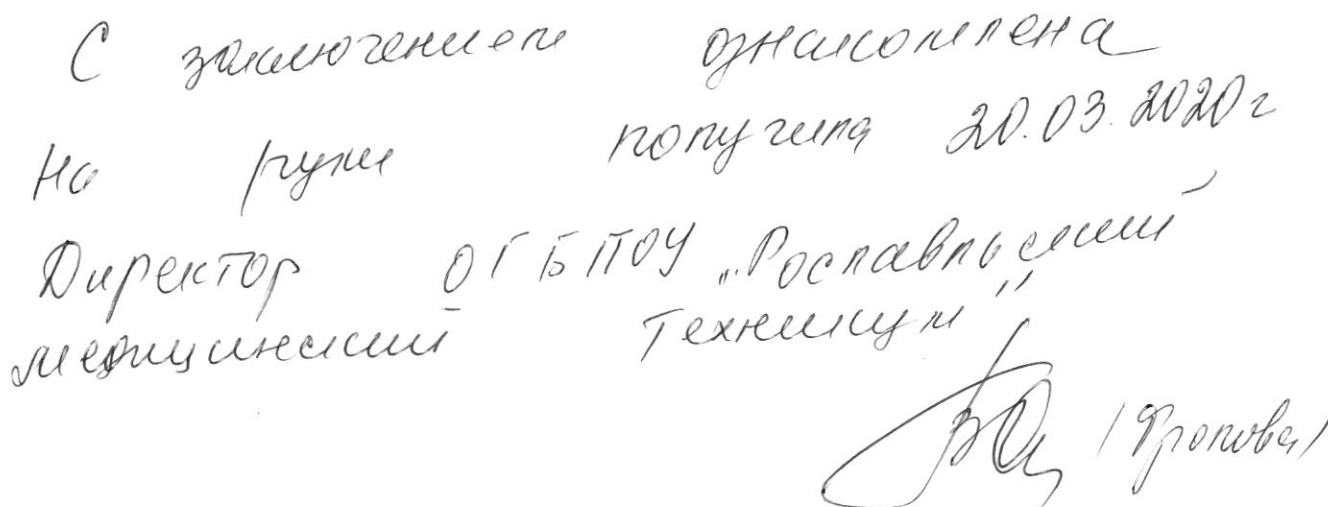 С заключением ознакомлена
На руки получила 20.03.2020г
Директор ОГБПОУ „Рославльский
медицинский техникум"
/Фролова/